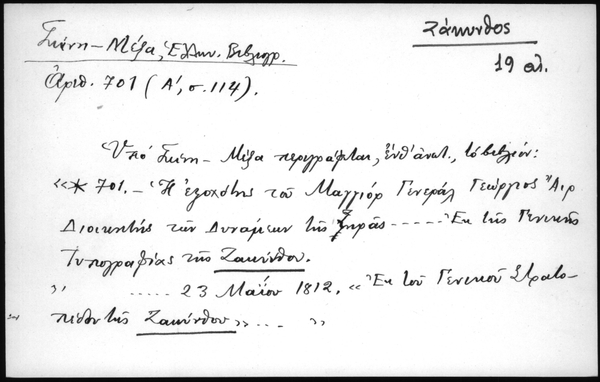 Ζάκυνθος
19 αἰ.
Γκίνη - Μέξα, Ἑλλην. Βιβλιογρ.
Ἀριθ. 701 (Α', σ. 114).
Ὑπό Γκίνη - Μέξα περιγράφεται, ἐνθ' ἀνωτ., τό βιβλίον:
«* 701. - Ἡ ἐξοχότης του Μαγγιόρ Γενεράλ Γεώργιος Ἄιρ
Διοικητής των Δυνάμεων της Ξηρᾶς ----- Ἐκ της Γενικῆς
Τυπογραφίας της Ζακύνθου.
» ..... 23 Μαΐου 1812. «Ἐκ τοῦ Γενικοῦ Στρατο-
πέδου της Ζακύνθου» --.. »